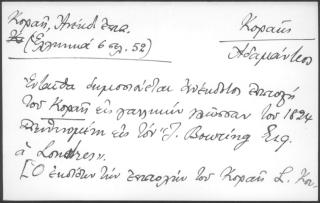 Κοραῆ, Ἀνέκδ. ἐπιστ.
(Ἑλληνικά 6 σελ. 52)
Κοραῆς
Ἀδαμάντιος
Ἐνταῦθα δημοσιεύεται ἀνέκδοτος ἐπιστολή
τοῦ Κοραῆ εἰς γαλλικήν γλῶσσαν τοῦ 1824
ἀπευθυνομένη εἰς τόν "J. Bowring Esq.
à Londres".
[Ὁ ἐκδότης τήν ἐπιστολήν τοῦ Κοραῆ